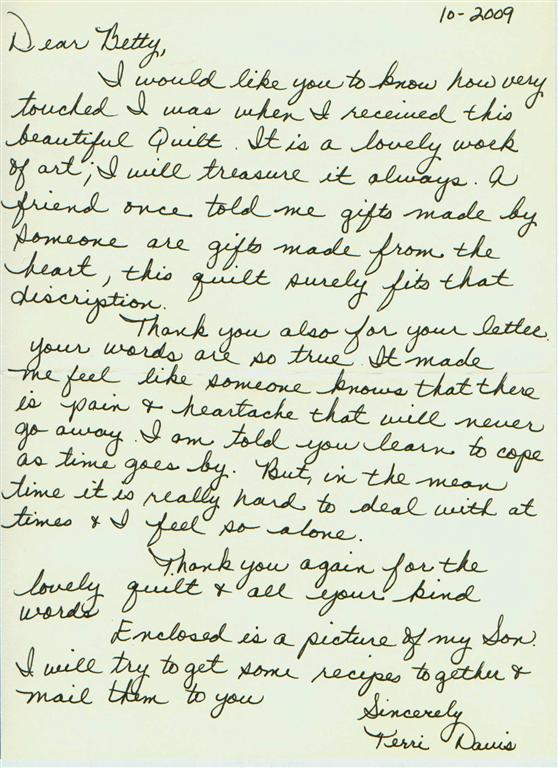 10-2009
Dear Betty,
I would like you to know how very
touched I was when I received this
beautiful Quilt. It is a lovely work
of art; I will treasure it always. A
friend once told me gifts made by
someone are gifts made from the
heart, this quilt surely fits that
discription.
Thank you also for your letter.
your words are so true. It made
me feel like someone knows that there
is pain & heartache that will never
go away. I am told you learn to cope
as time goes by. But, in the mean
time it is really hard to deal with at
times & I feel so alone.
Thank you again for the
lovely quilt & all your kind
words
Enclosed is a picture of my Son.
I will try to get some recipes together &
mail them to you
Sincerely
Terri Davis